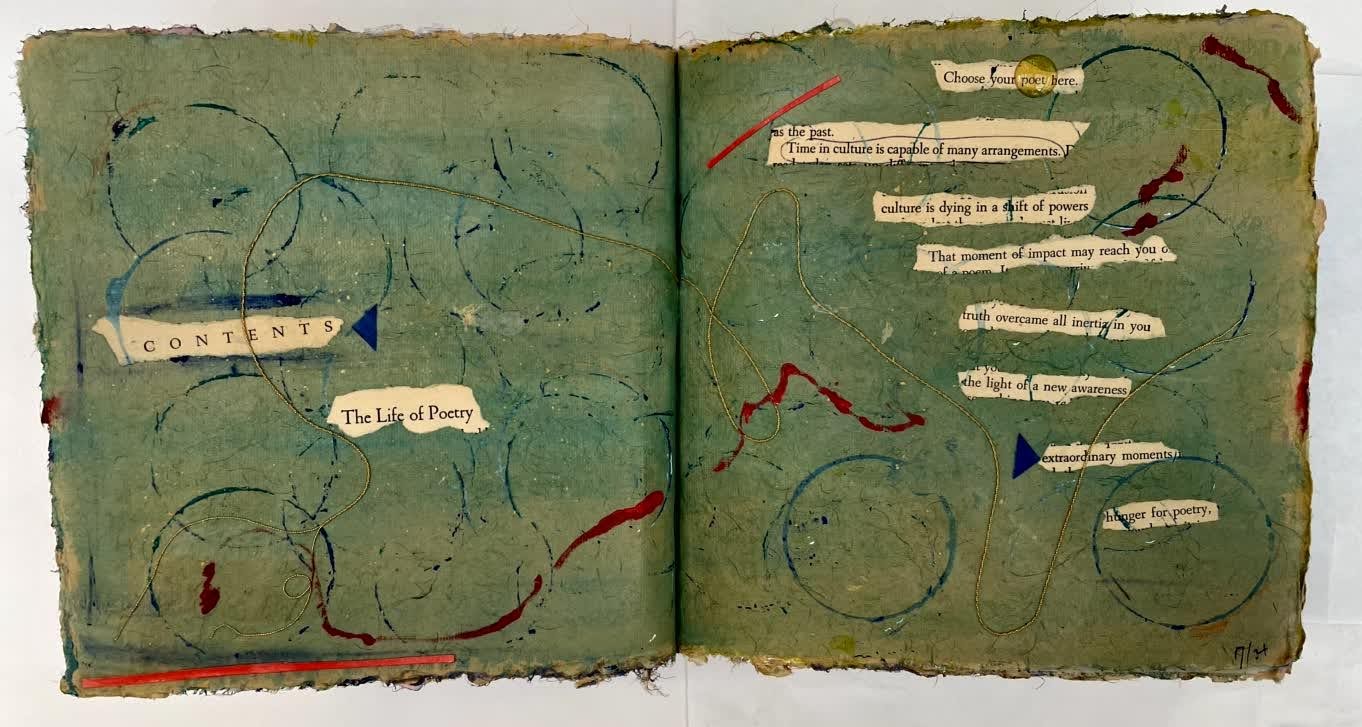 CONTENTS
The Life of Poetry
Choose your poet here.
as the past.
Time in culture is capable of many arrangements.
culture is dying in a shift of powers
That moment of impact may reach you
of a poem.
truth overcame all inertia in you
the light of a new awareness
extraordinary moments
hunger for poetry,